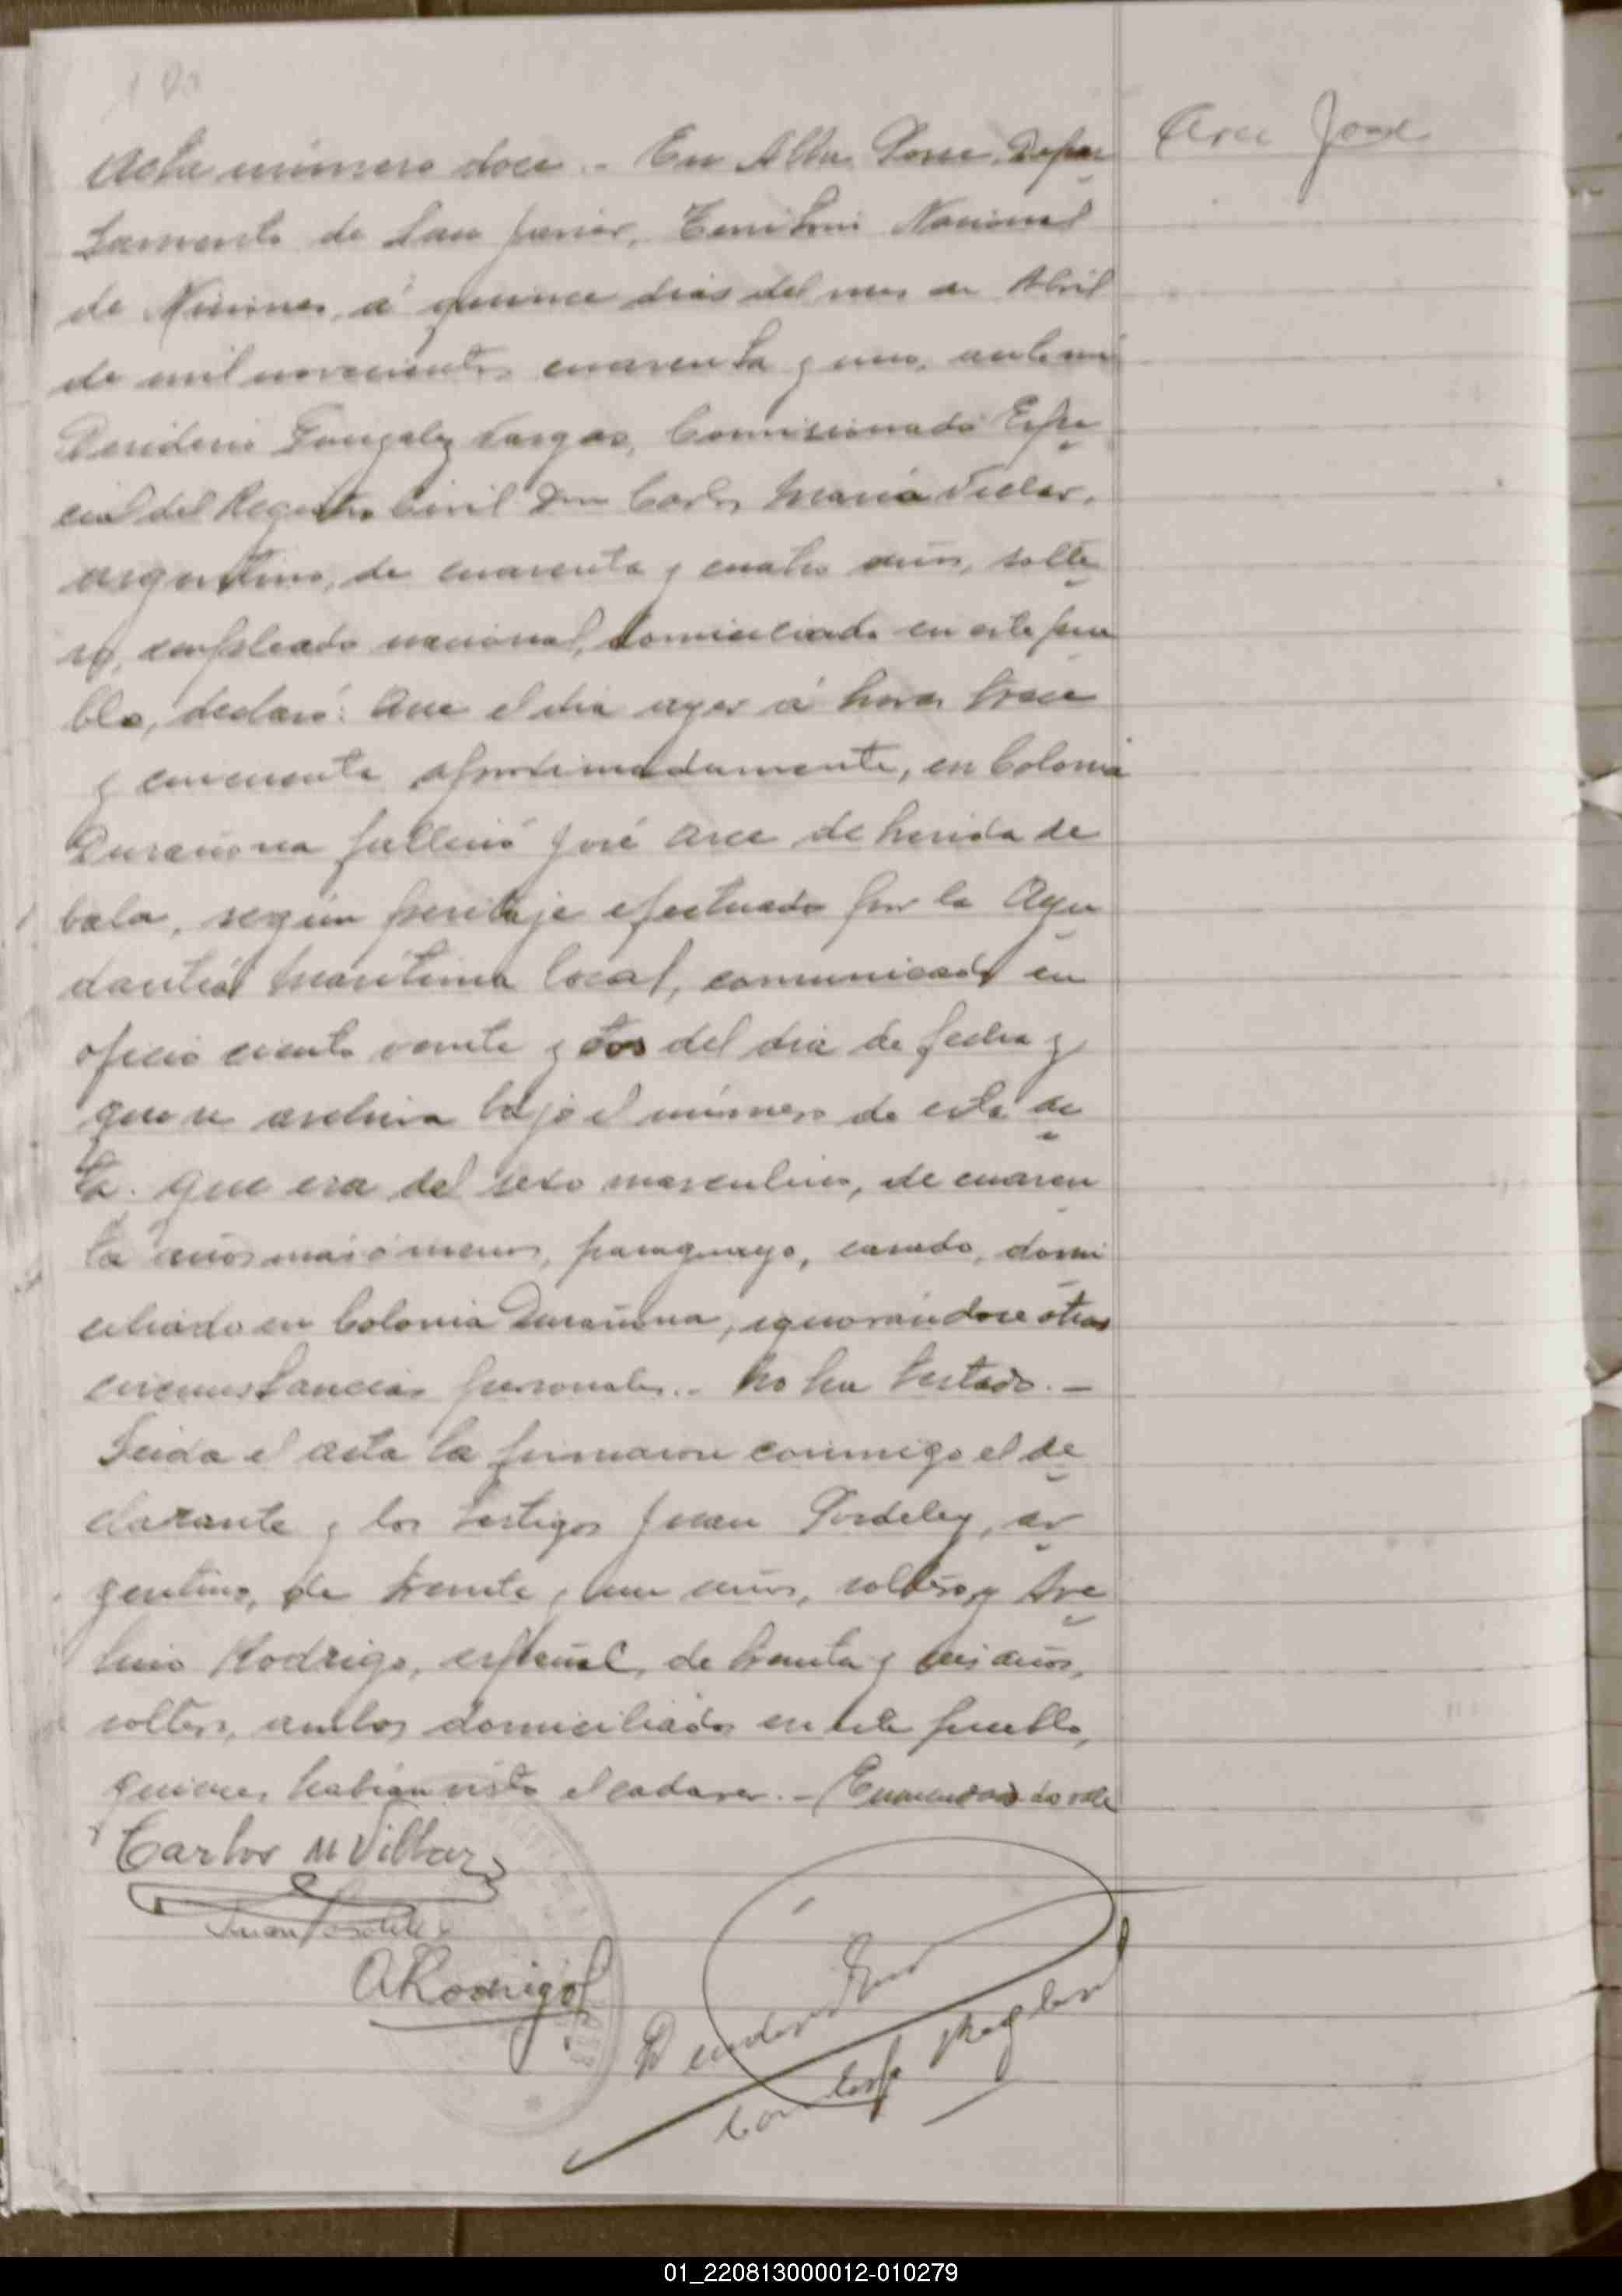 Arce José
Acta número doce.- En Alba Posse, Depar
tamento de San Javier, Territorio Nacional
de Misiones, á quince dias del mes de Abril
de mil novecientos cuarenta y uno, ante mi
Desiderio Gonzalez Vargas, Comisionado Espe
cial del Registro Civil Don Carlos María Villar,
argentino, de cuarenta y cuatro años, solte
ro, empleado nacional, domiciliado en este pue
blo, declaró: Que el dia ayer á horas trece
y cincuenta aproximadamente, en Colonia
Durañona falleció José Arce de herida de
bala, según peritaje efectuado por la Ayu
dantía Marítima local, comunicado en
oficio ciento veinte y dos del dia de fecha y
que se archiva bajo el número de esta ac
ta. Que era del sexo masculino, de cuaren
ta años más ó menos, paraguayo, casado, domi
ciliado en Colonia Durañona, ignorándose otras
circunstancias personales.- No ha testado.-
Leida el acta la firmaron conmigo el de
clarante y los testigos Juan Pordeley, ar
gentino, de treinta y un años, soltero y Ave
lino Rodrigo, español, de treinta y seis años,
soltero, ambos domiciliados en este pueblo,
quienes habian visto el cadaver.- Enmendado dos vale
Carlos M Villar
Juan
ARodrigo
01_220813000012-010279